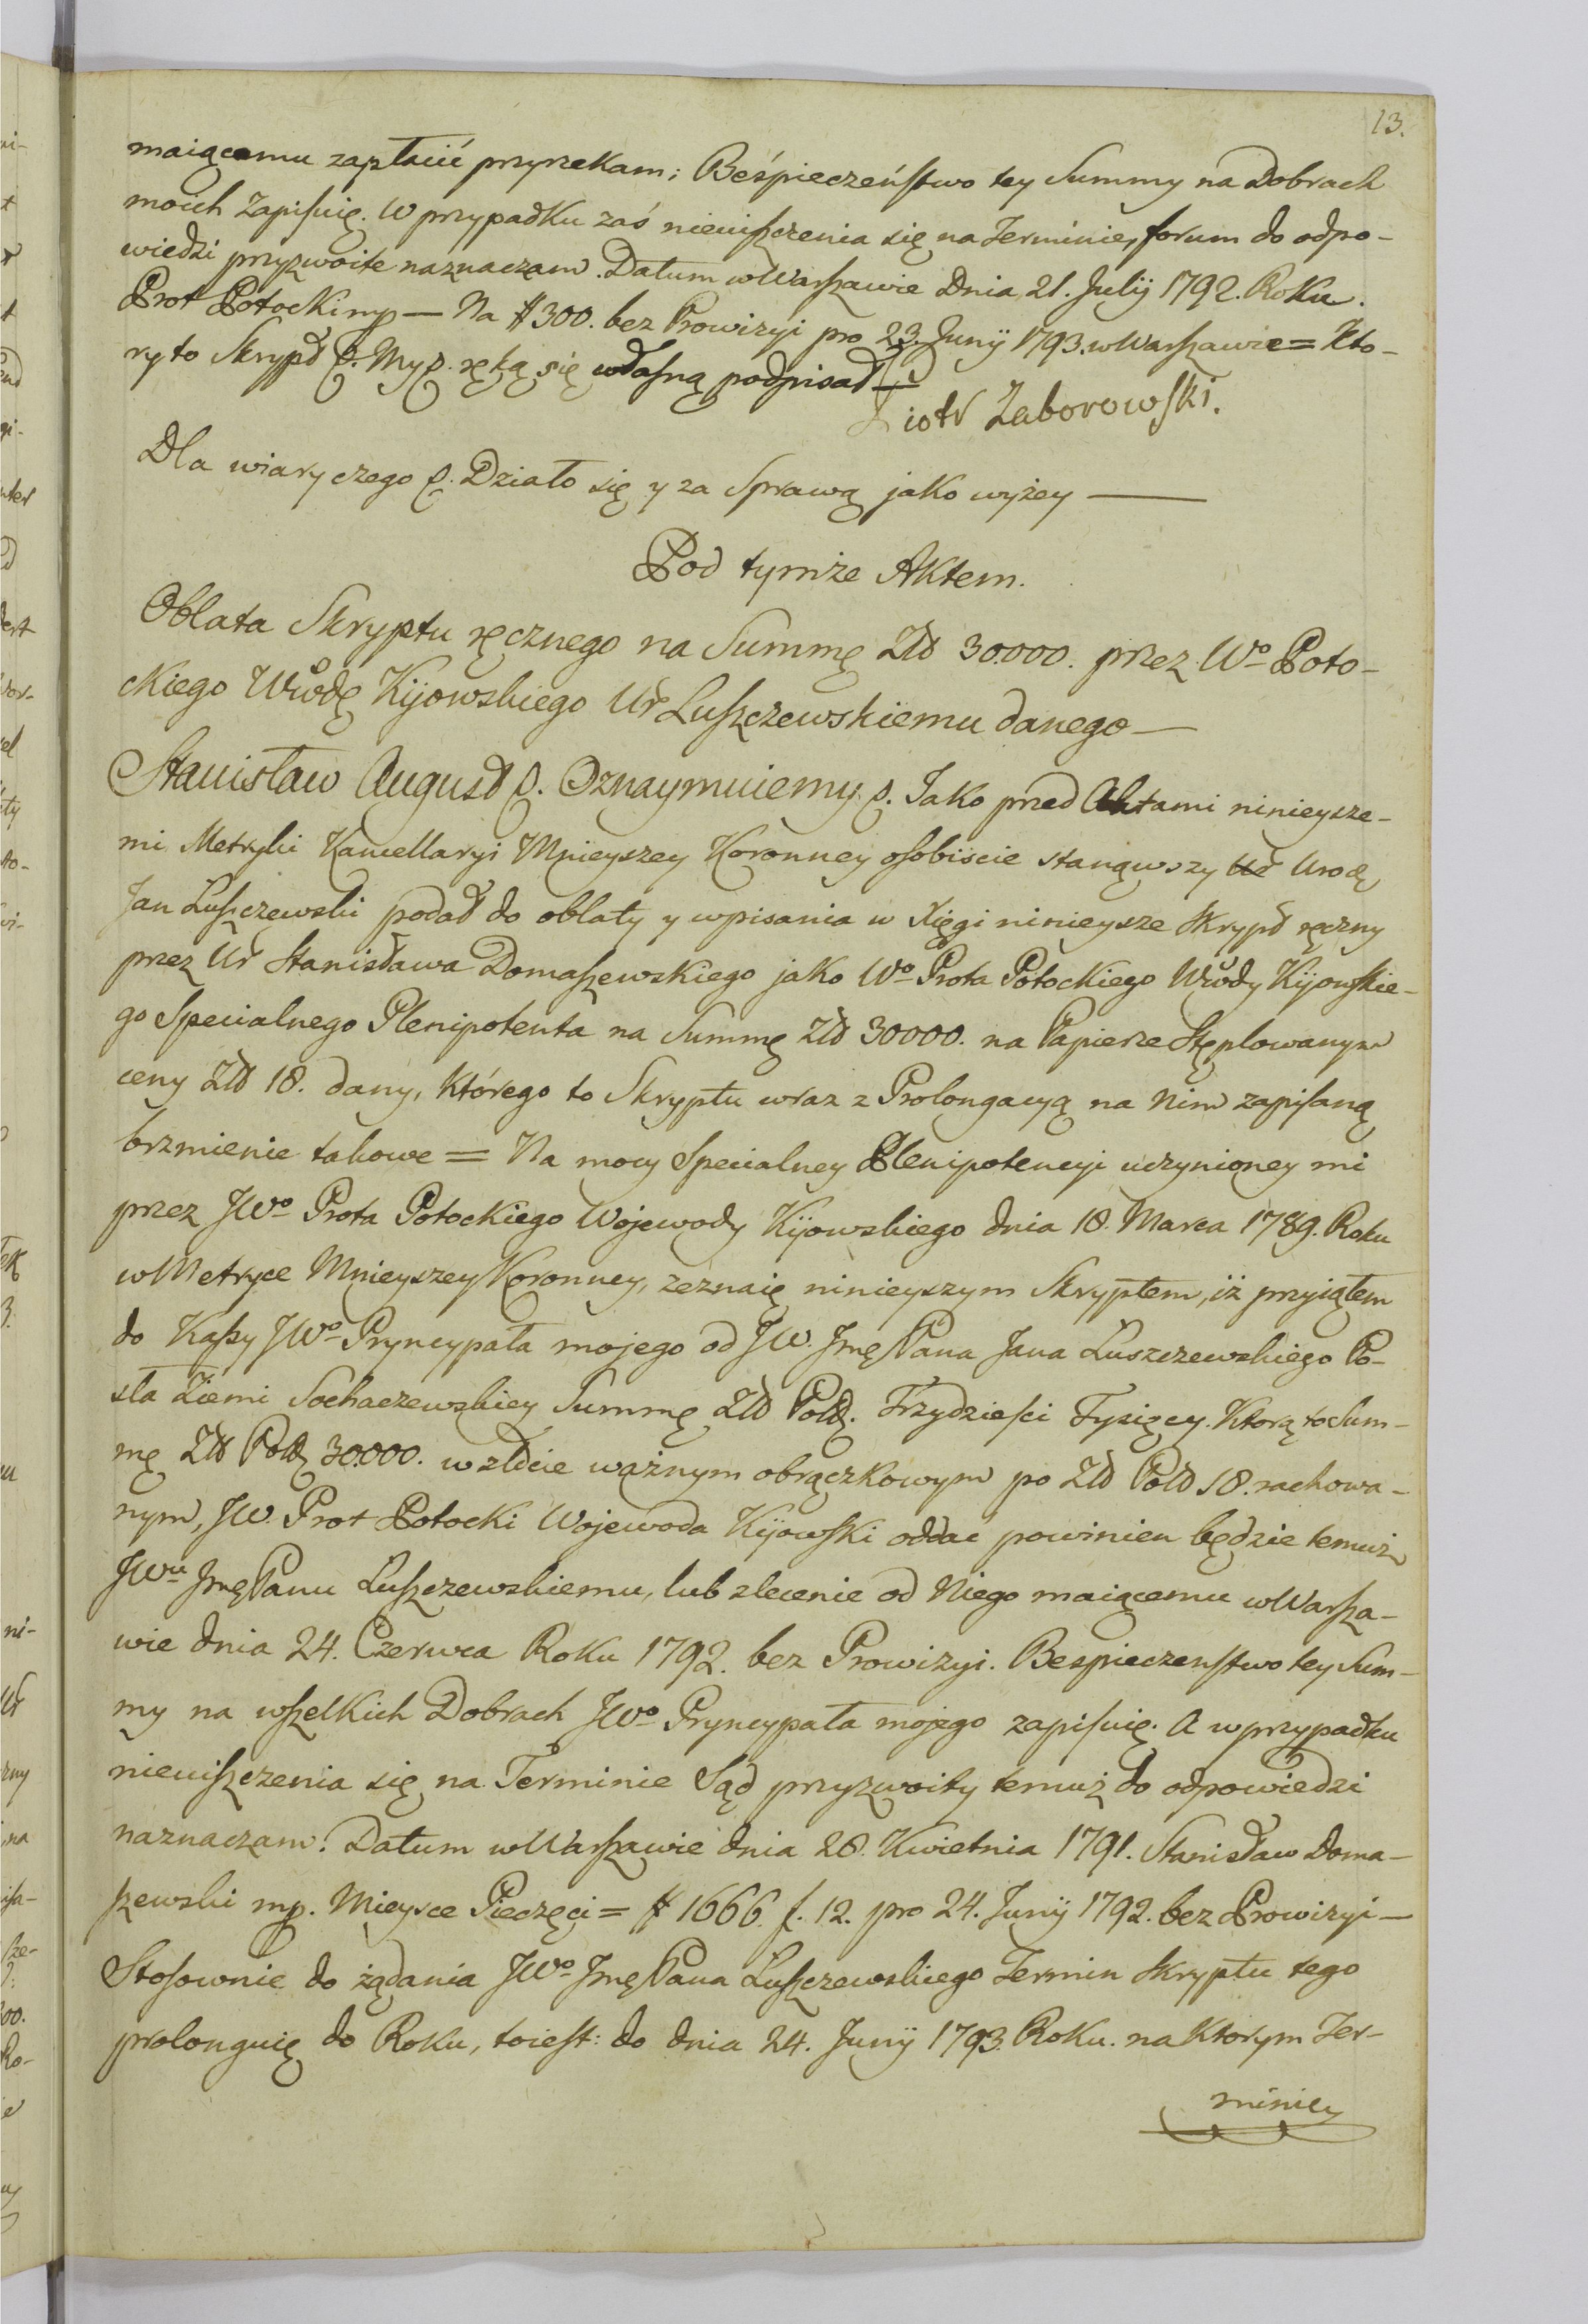 13.
maiącemu zapłacić przyrzekam; Beśpieczeństwo tey Summy na Dobrach
moich Zapisuię. W przypadku zaś nieuiszczenia się na Terminie, forum do odpo-
wiedzi przyzwoite naznaczam. Datum w Warszawie Dnia 21. Julij 1792. Roku.
Prot Potocki mp — Na # 300. bez Prowizyi pro 23. Junij 1793. w Warszawie = Kto-
ry to Skrypt ręką się własną podpisał —
Piotr Zaborowski.
Dla wiary czego &. Działo się y za Sprawą jako wyżey —
Pod tymże Aktem.
Oblata Skryptu ręcznego na Summę Złł 30.000. przez Wo Poto-
ckiego Wwdę Kijowskiego Ur Luszczewskiemu danego —
Stanisław August &. Oznaymuiemy &. Jako przed Aktami ninieysze-
mi Metryki Kancellaryi Mnieyszey Koronney osobiscie stanąwszy Ur Urodz
Jan Luszczewski podał do oblaty y wpisania w Xięgi ninieysze Skrypt ręczny
przez Ur Stanisława Domaszewskiego jako Wo Prota Potockiego Wwdy Kijowskie-
go Specialnego Plenipotenta na Summę Złł 30000. na Papierze Stęplowanym
ceny Złł 18. dany, którego to Skryptu wraz z Prolongacyą na Nim zapisaną
brzmienie takowe = Na mocy Specialney Plenipotencyi uczynioney mi
przez JWo Prota Potockiego Wojewody Kijowskiego dnia 18. Marca 1789. Roku
w Metryce Mnieyszey Koronney, zeznaię ninieyszym Skryptem, iż przyiąłem
do Kassy JWo Pryncypała mojego od JW. Jmę Pana Jana Luszczewskiego Po-
sła Ziemi Sochaczewskiey Summę Złł Polł. Trzydzieści Tysięcy. Którą to Sum-
mę Złł Polł 30.000. w złocie ważnym obrączkowym po Złł Pol 18. rachowa-
nym, JW. Prot Potocki Wojewoda Kijowski oddac powinien będzie temuż
JWu Jmę Panu Luszczewskiemu, lub zlecenie od Niego maiącemu w Warsza-
wie dnia 24. Czerwca Roku 1792. bez Prowizyi. Bespieczenstwo tey Sum-
my na wszelkich Dobrach JWo Pryncypała mojego zapisuię. A w przypadku
nieuiszczenia się na Terminie Sąd przyzwoity temuż do odpowiedzi
naznaczam. Datum w Warszawie dnia 28. Kwietnia 1791. Stanisław Doma-
szewski mp. Mieysce Pieczęci = # 1666. f. 12. pro 24. Junij 1792. bez Prowizyi —
Stosownie do żądania JWo Jmę Pana Luszczewskiego Termin Skryptu tego
prolonguię do Roku, toiest: do dnia 24. Junij 1793. Roku. na Ktorym Ter-
miniey